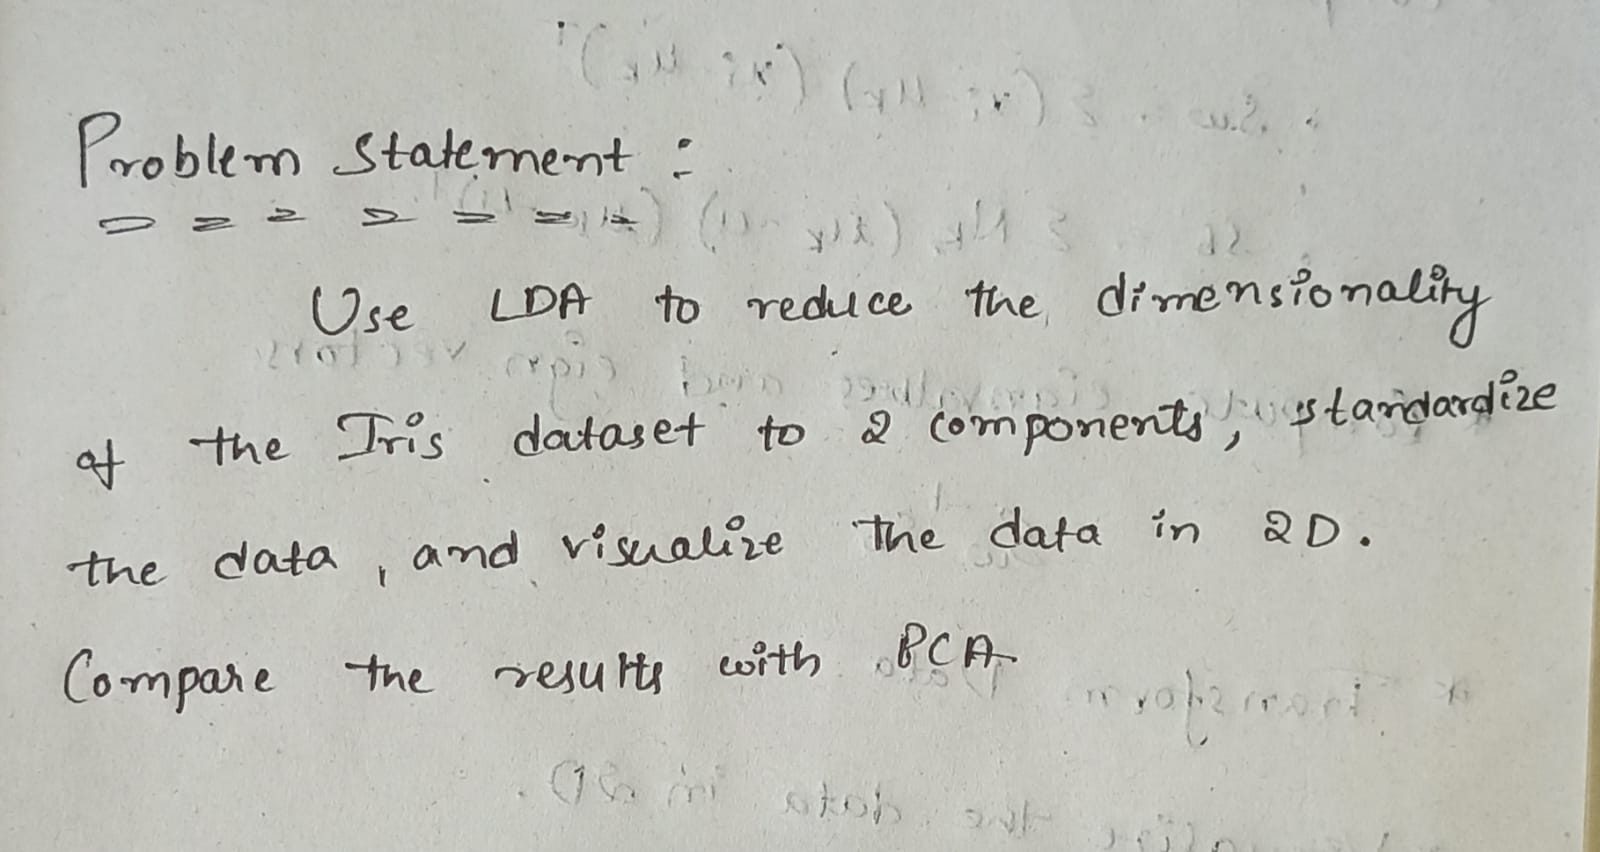 Problem Statement :
Use LDA to reduce the dimensionality
of the Iris dataset to 2 components, standardize
the data, and visualize the data in 2D.
Compare the results with PCA